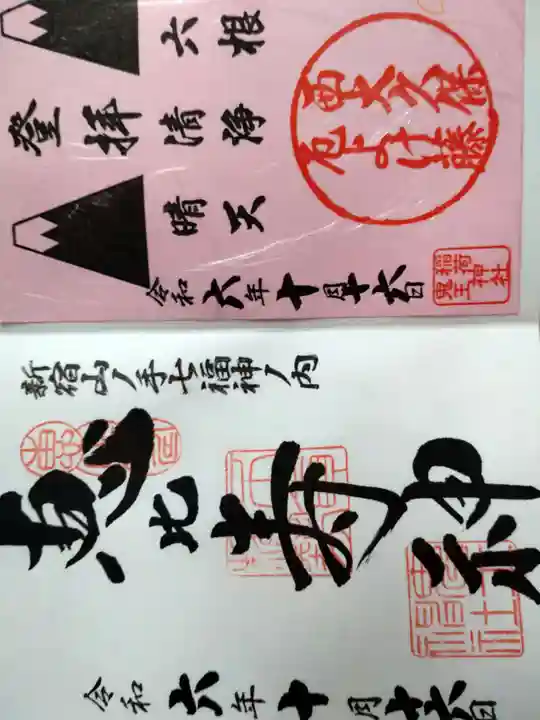 六根
登拝清浄
晴天
西大久保
厄よけ藤
稲荷
鬼王
神社
令和六年十月十六日
新宿山ノ手七福神ノ内
恵比寿神
令和六年十月十六日